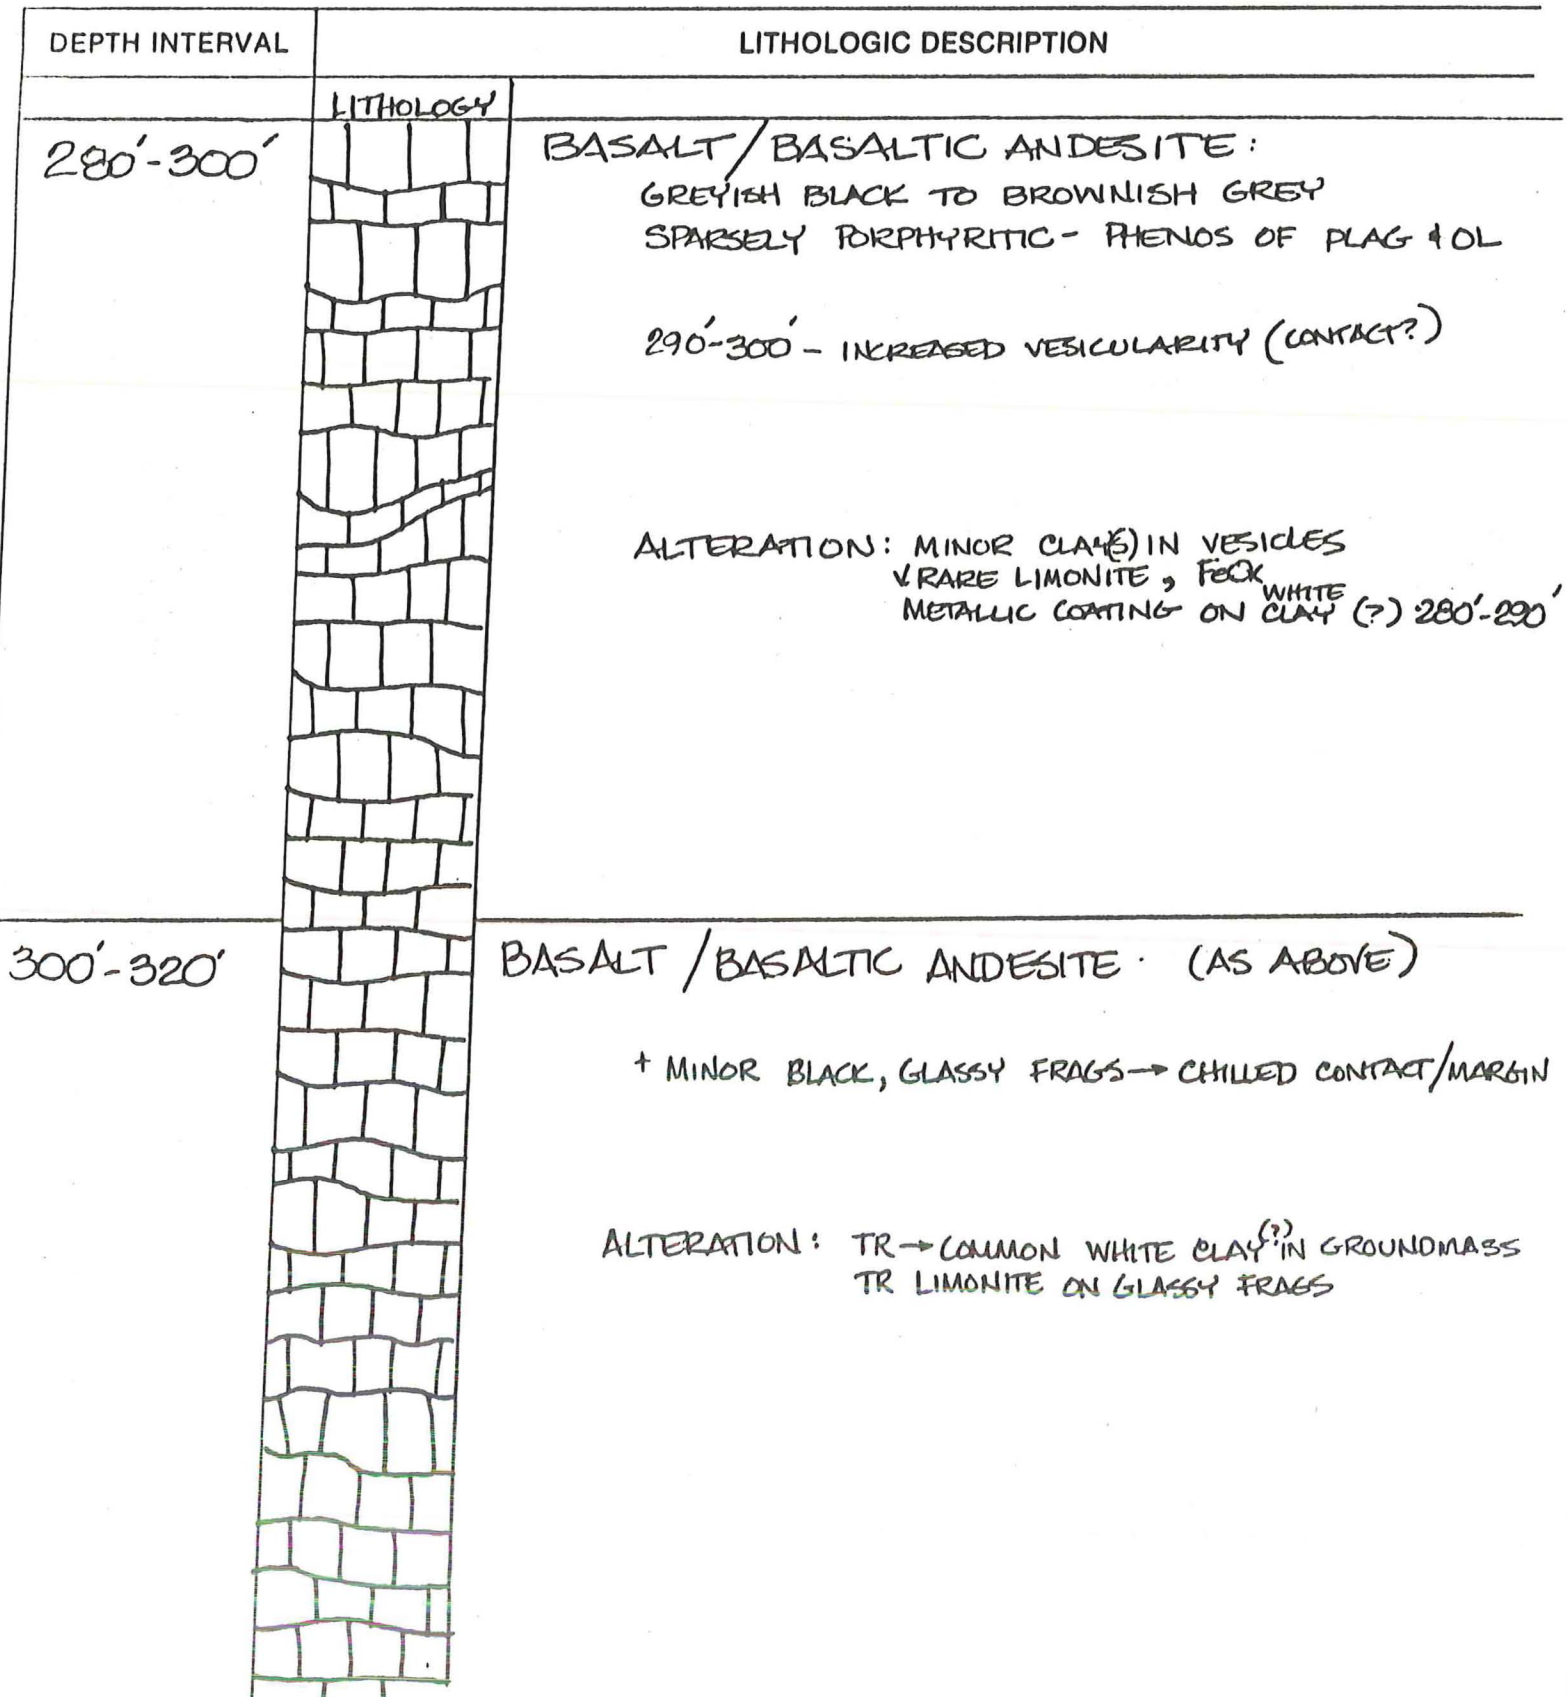 DEPTH INTERVAL
LITHOLOGIC DESCRIPTION
LITHOLOGY
280'-300'
BASALT/BASALTIC ANDESITE:
GREYISH BLACK TO BROWNISH GREY
SPARSELY PORPHYRITIC- PHENOS OF PLAG & OL
290'-300' - INCREASED VESICULARITY (CONTACT?)
ALTERATION: MINOR CLAY(S) IN VESICLES
V RARE LIMONITE, FeOx
WHITE
METALLIC COATING ON CLAY (?) 280'-290'
300'-320'
BASALT/BASALTIC ANDESITE. (AS ABOVE)
+ MINOR BLACK, GLASSY FRAGS→ CHILLED CONTACT/MARGIN
ALTERATION: TR→COMMON WHITE CLAY(?) IN GROUNDMASS
TR LIMONITE ON GLASSY FRAGS